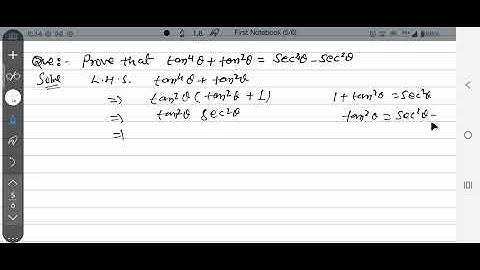 First Notebook (5/6)
Que:- Prove that tan⁴θ + tan²θ = sec⁴θ - sec²θ
Solve L.H.S. tan⁴θ + tan²θ
⇒ tan²θ (tan²θ + 1) 1 + tan²θ = sec²θ
⇒ tan²θ sec²θ tan²θ = sec²θ -
⇒